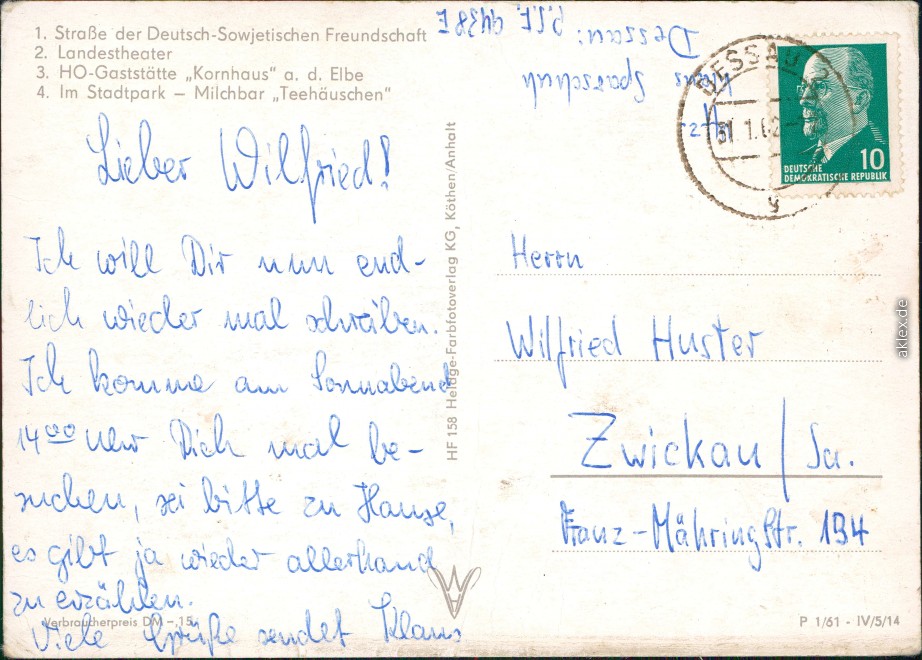 1. Straße der Deutsch-Sowjetischen Freundschaft
2. Landestheater
3. HO-Gaststätte „Kornhaus" a. d. Elbe
4. Im Stadtpark – Milchbar „Teehäuschen"
Lieber Wilfried!
Ich will Dir nun end-
lich wieder mal schreiben.
Ich komme am Sonnabend
14⁰⁰ Dich mal be-
suchen, sei bitte zu Hause,
es gibt ja wieder allerhand
zu erzählen.
Viele Grüße sendet Klaus
Verbraucherpreis DM –,15
HF 158 Heldge-Farbfotoverlag KG, Köthen/Anhalt
Klaus
Dessau
DESSAU
31.1.62
y
10
DEUTSCHE
DEMOKRATISCHE REPUBLIK
Herrn
Wilfried Huster
Zwickau / Sa.
Franz-Mähringstr. 194
P 1/61 - IV/5/14
aklex.de